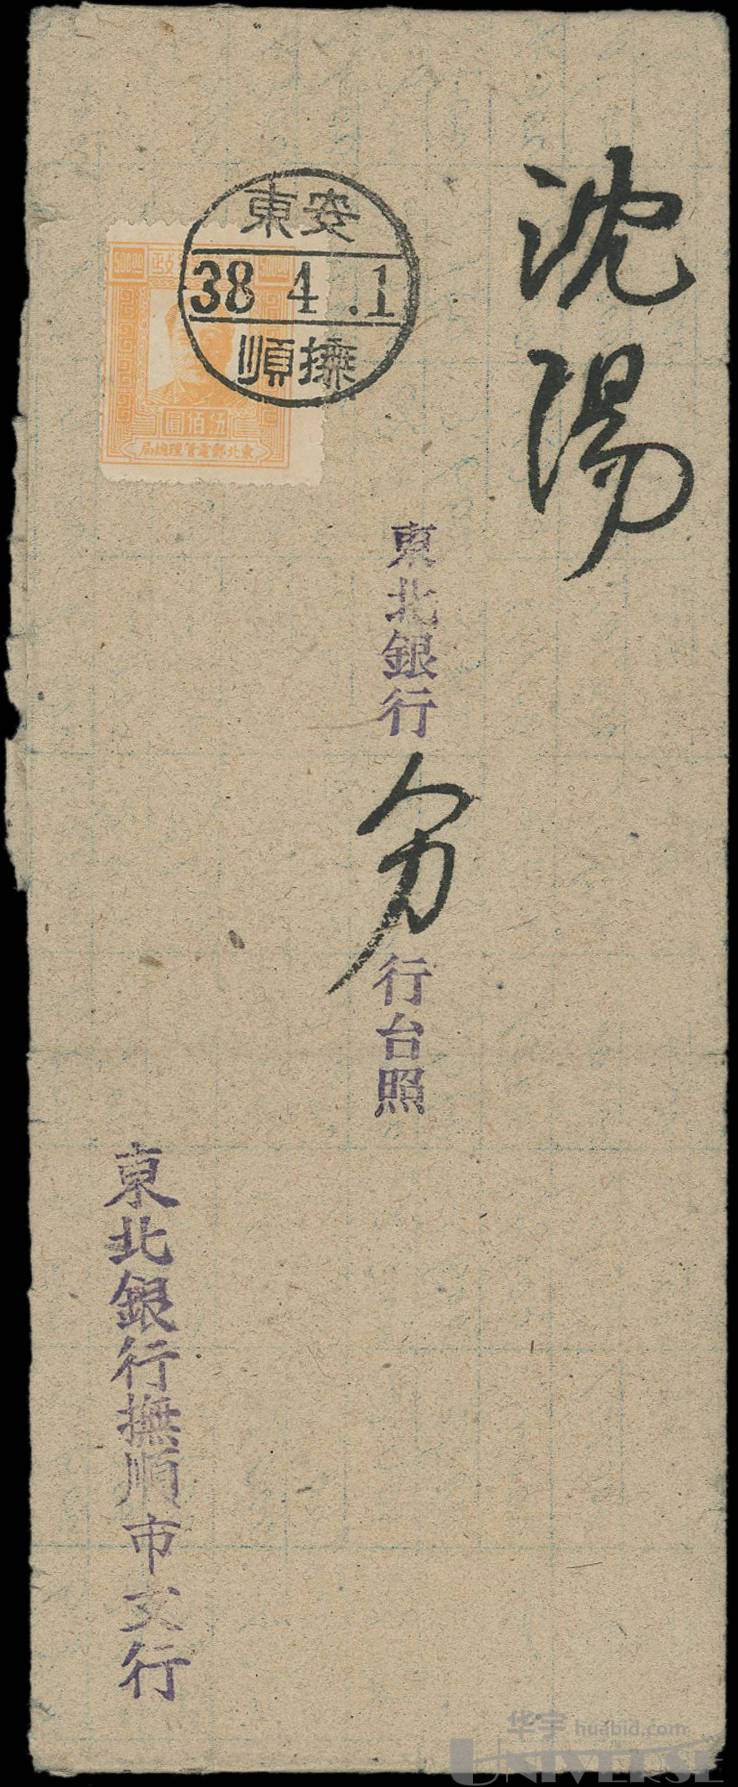 沈陽
東北銀行分行台照
東北銀行撫順市支行
安東
38 4 .1
撫順
500.00
政
500.00
伍佰圓
東北郵電管理總局
华宇 huabid.com
UNIVERSE